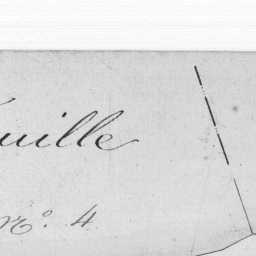 uille
Nº. 4